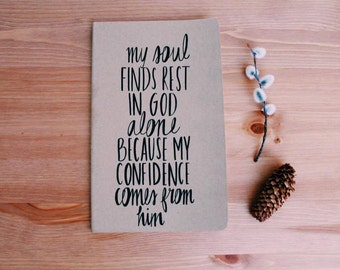 my soul
FINDS REST
IN GOD
alone
BECAUSE MY
CONFIDENCE
comes from
him